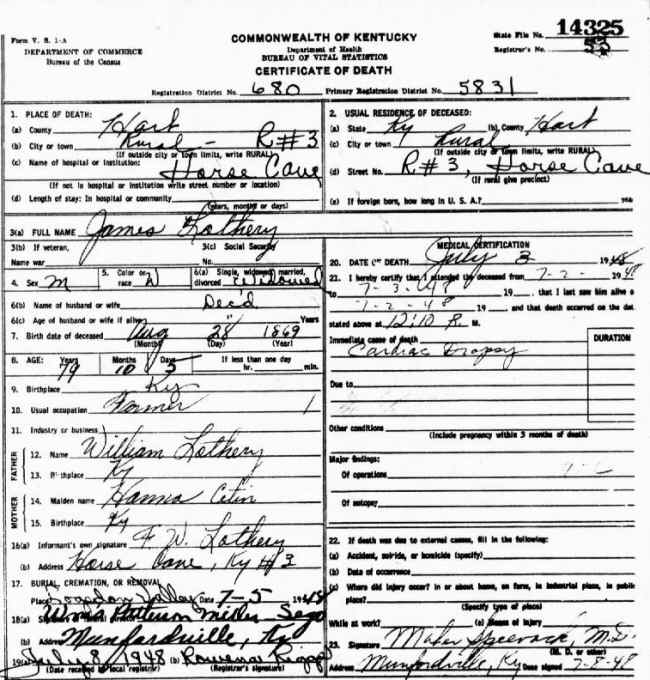 Form V. S. 1-A
DEPARTMENT OF COMMERCE
Bureau of the Census
COMMONWEALTH OF KENTUCKY
Department of Health
BUREAU OF VITAL STATISTICS
CERTIFICATE OF DEATH
State File No. 14325
Registrar's No. 53
Registration District No. 680 Primary Registration District No. 5831
1. PLACE OF DEATH:
(a) County Hart
(b) City or town Rural - R#3
(If outside city or town limits, write RURAL)
(c) Name of hospital or institution: Horse Cave
(If not in hospital or institution write street number or location)
(d) Length of stay: In hospital or community
(years, months or days)
2. USUAL RESIDENCE OF DECEASED:
(a) State Ky (b) County Hart
(c) City or town Rural
(If outside city or town limits, write RURAL)
(d) Street No. R#3, Horse Cave
(If rural give precinct)
(e) If foreign born, how long in U. S. A.?
3(a) FULL NAME James Lothery
3(b) If veteran, 3(c) Social Security
Name war No.
4. Sex M 5. Color or race W 6(a) Single, widowed, married, divorced Widowed
6(b) Name of husband or wife Dec'd
6(c) Age of husband or wife if alive Years
7. Birth date of deceased Aug 28 1869
(Month) (Day) (Year)
8. AGE: Years Months Days If less than one day
79 10 5 hr. min.
9. Birthplace Ky
10. Usual occupation Farmer
11. Industry or business
FATHER
12. Name William Lothery
13. Birthplace Ky
MOTHER
14. Maiden name Hanna
15. Birthplace Ky
16(a) Informant's own signature F. W. Lothery
(b) Address Horse Cave, Ky #3
17. BURIAL, CREMATION, OR REMOVAL
Place Valley Date 7-5 1948
18(a)
(b) Address Munfordville, Ky
19(a) July 8, 1948 (b) Rowena
(Date received by local registrar) (Registrar's signature)
MEDICAL CERTIFICATION
20. DATE OF DEATH July 3 1948
21. I hereby certify that I attended the deceased from 7-2- 1948
7-3-48 19 , that I last saw him alive o
7-2-48 19 , and that death occurred on the dat
stated above at 12:10 P. M.
Immediate cause of death DURATION
Cardiac Dropsy
Due to
Other conditions
(Include pregnancy within 3 months of death)
Major findings:
Of operations
Of autopsy
22. If death was due to external causes, fill in the following:
(a) Accident, suicide, or homicide (specify)
(b) Date of occurrence
(c) Where did injury occur? In or about home, on farm, in industrial place, in public
place?
(Specify type of place)
While at work? (e) Means of injury
23. Signature M.D.
(M. D. or other)
Address Munfordville, Ky Date signed 7-8-48